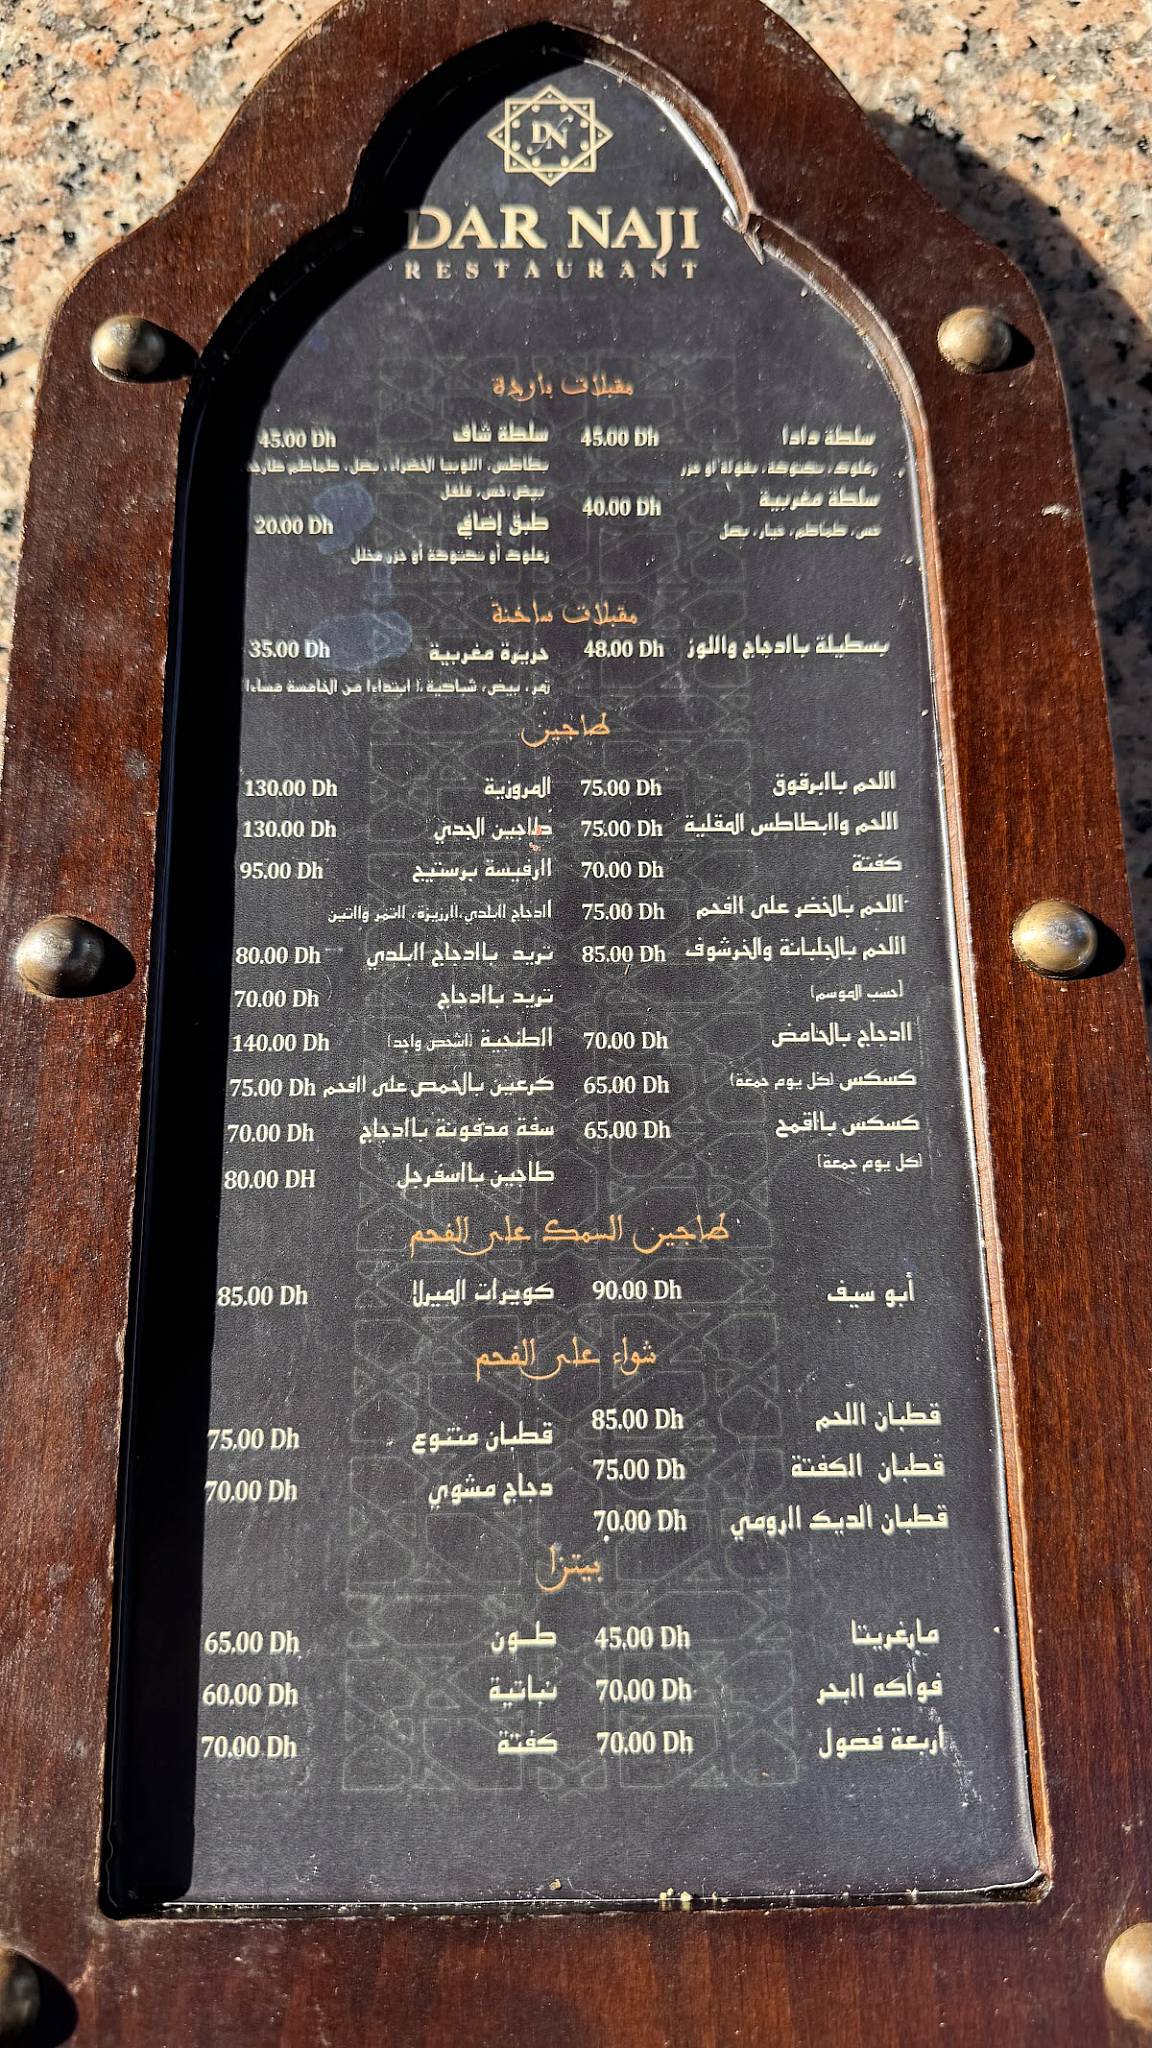 DN
DAR NAJI
RESTAURANT
مقبلات باردة
سلطة دادا 45.00 Dh
زعلوك، تكتوكة، بقولة أو جزر
سلطة مغربية 40.00 Dh
خس، طماطم، خيار، بصل
سلطة شاف 45.00 Dh
بطاطس، اللوبيا الخضراء، بصل، طماطم طازجة
بيض، خس، فلفل
طبق إضافي 20.00 Dh
زعلوك أو تكتوكة أو جزر مخلل
مقبلات ساخنة
بسطيلة بالدجاج واللوز 48.00 Dh
حريرة مغربية 35.00 Dh
تمر، بيض، شباكية، ابتداءا من الخامسة مساءا
طاجين
اللحم بالبرقوق 75.00 Dh
اللحم والبطاطس المقلية 75.00 Dh
كفتة 70.00 Dh
اللحم بالخضر على الفحم 75.00 Dh
اللحم بالجلبانة والخرشوف 85.00 Dh
(حسب الموسم)
الدجاج بالحامض 70.00 Dh
كسكس (كل يوم جمعة) 65.00 Dh
كسكس بالقمح 65.00 Dh
(كل يوم جمعة)
المروزية 130.00 Dh
طاجين الجدي 130.00 Dh
الرفيسة برستيج 95.00 Dh
الدجاج البلدي، الرزيزة، التمر والتين
تريد بالدجاج البلدي 80.00 Dh
تريد بالدجاج 70.00 Dh
الطنجية (لشخص واحد) 140.00 Dh
كرعين بالحمص على الفحم 75.00 Dh
سفة مدفونة بالدجاج 70.00 Dh
طاجين بالسفرجل 80.00 DH
طاجين السمك على الفحم
أبو سيف 90.00 Dh
كويرات الميرلا 85.00 Dh
شواء على الفحم
قطبان اللحم 85.00 Dh
قطبان الكفتة 75.00 Dh
قطبان الديك الرومي 70.00 Dh
قطبان متنوع 75.00 Dh
دجاج مشوي 70.00 Dh
بيتزا
مارغريتا 45.00 Dh
فواكه البحر 70.00 Dh
أربعة فصول 70.00 Dh
طـون 65.00 Dh
نباتية 60.00 Dh
كفتة 70.00 Dh